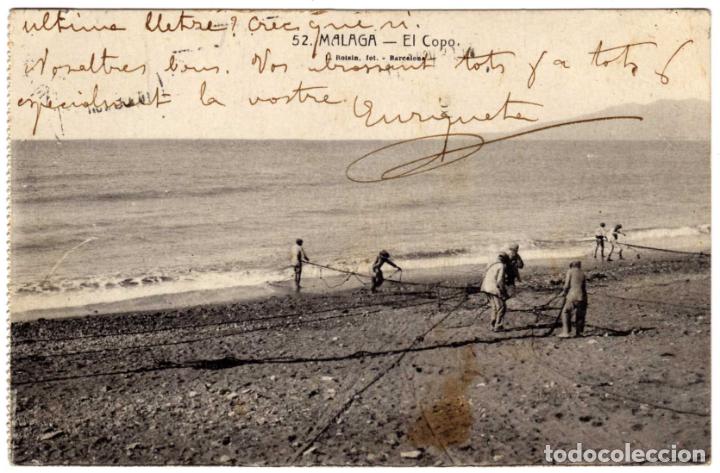 ultima lletre? Crec que si.
52. MALAGA — El Copo.
Roisin, fot. - Barcelona
Nosaltres bons. Vos abrassent tots y a tots
espesialment la vostre
Enriqueta
todocoleccion.net